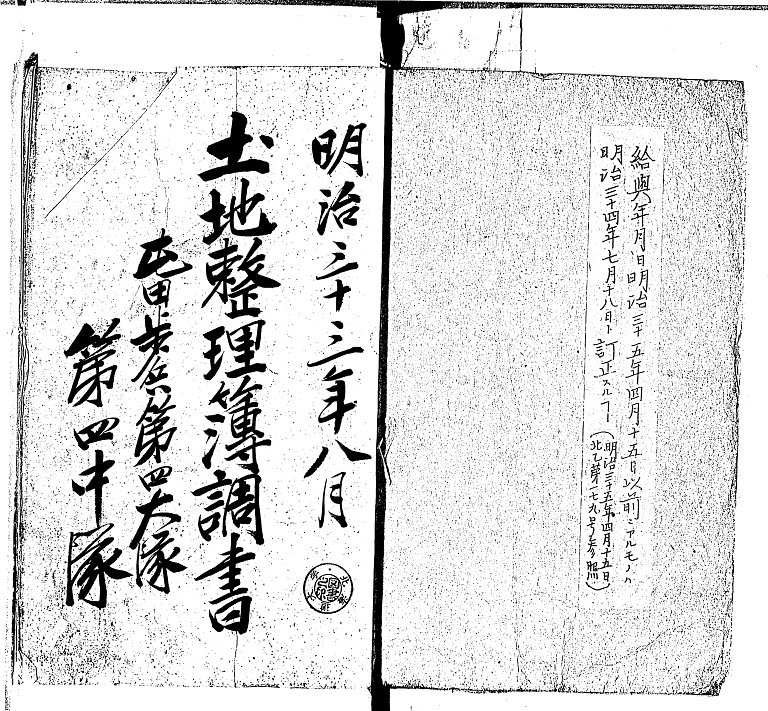 給與年月日明治三十五年四月十五日以前ニアルモノハ
明治三十四年七月十八日ト訂正スルヿ
(明治三十五年四月十五日
北乙第一七九号参照)
明治三十三年八月
土地整理簿調書
屯田歩兵第四大隊
第四中隊